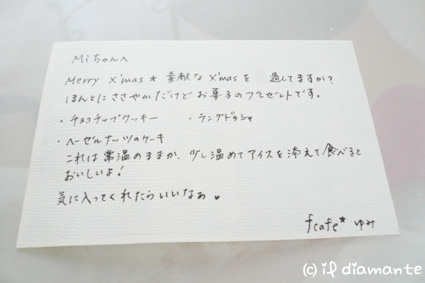 Miちゃんへ
Merry X'mas★ 素敵なX'masを 過してますか?
ほんとにささやかだけど お菓子のプレゼントです。
・チョコチップクッキー ・ラングドゥシャ
・ヘーゼルナッツのケーキ
これは常温のままか、少し温めてアイスを添えて食べると
おいしいよ!
気に入ってくれたらいいなぁ♥
fcafe* ゆみ
(c) if diamante